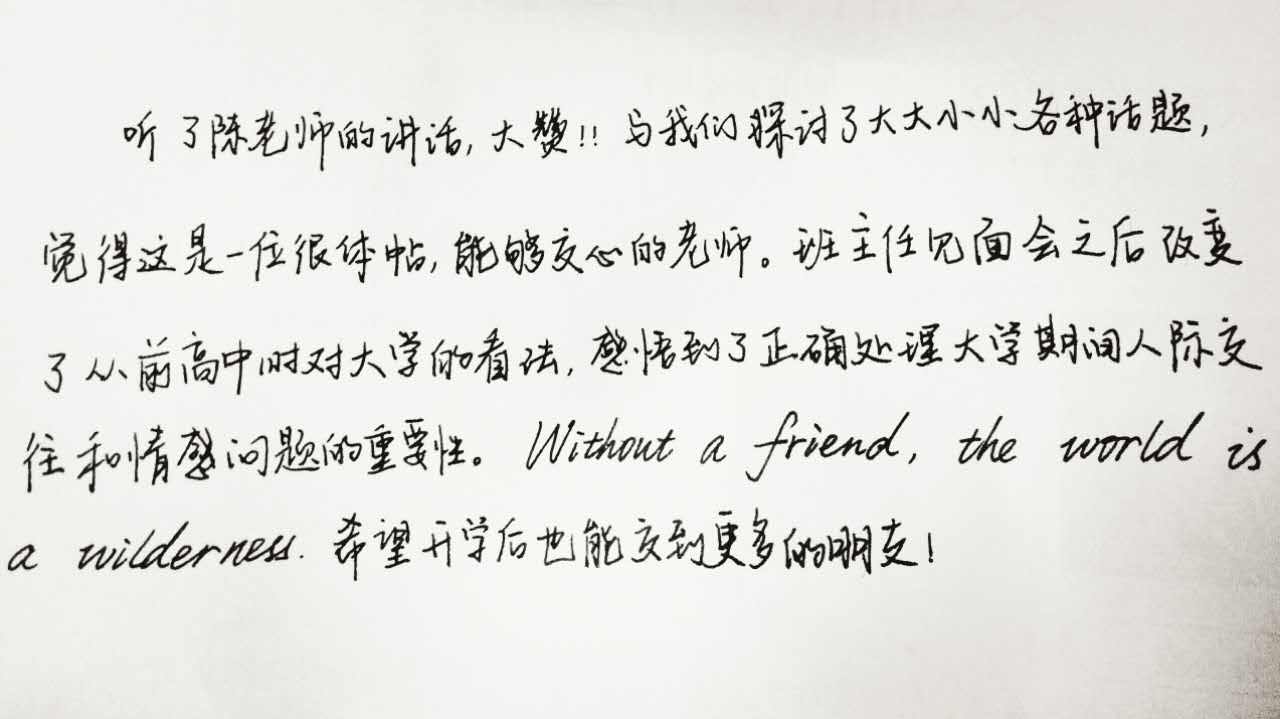 听了陈老师的讲话,大赞!!与我们探讨了大大小小各种话题,
觉得这是一位很体帖,能够交心的老师。班主任见面会之后改变
了从前高中时对大学的看法,感悟到了正确处理大学期间人际交
往和情感问题的重要性。Without a friend, the world is
a wilderness. 希望开学后也能交到更多的朋友!